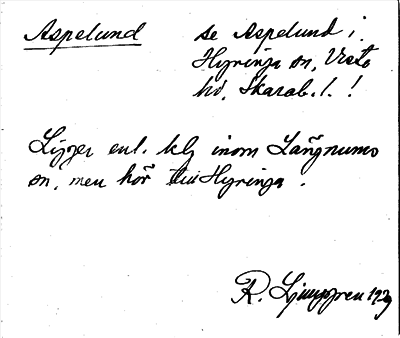 Aspelund se Aspelund i
Hyringa sn, Viste
hd, Skarab. l. !
Ligger enl. kb inom Långnums
sn, men hör till Hyringa.
R. Ljunggren 1929